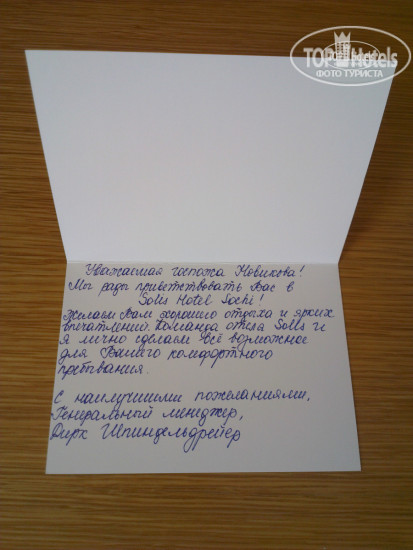 TOP Hotels
ФОТО ТУРИСТА
Уважаемая госпожа Новикова!
Мы рады приветствовать Вас в
Solis Hotel Sochi!
Желаем Вам хорошего отдыха и ярких
впечатлений. Команда отеля Solis и
я лично сделаем всё возможное
для Вашего комфортного
пребывания.
С наилучшими пожеланиями,
Генеральный менеджер,
Дирк Шпиндельдрейер